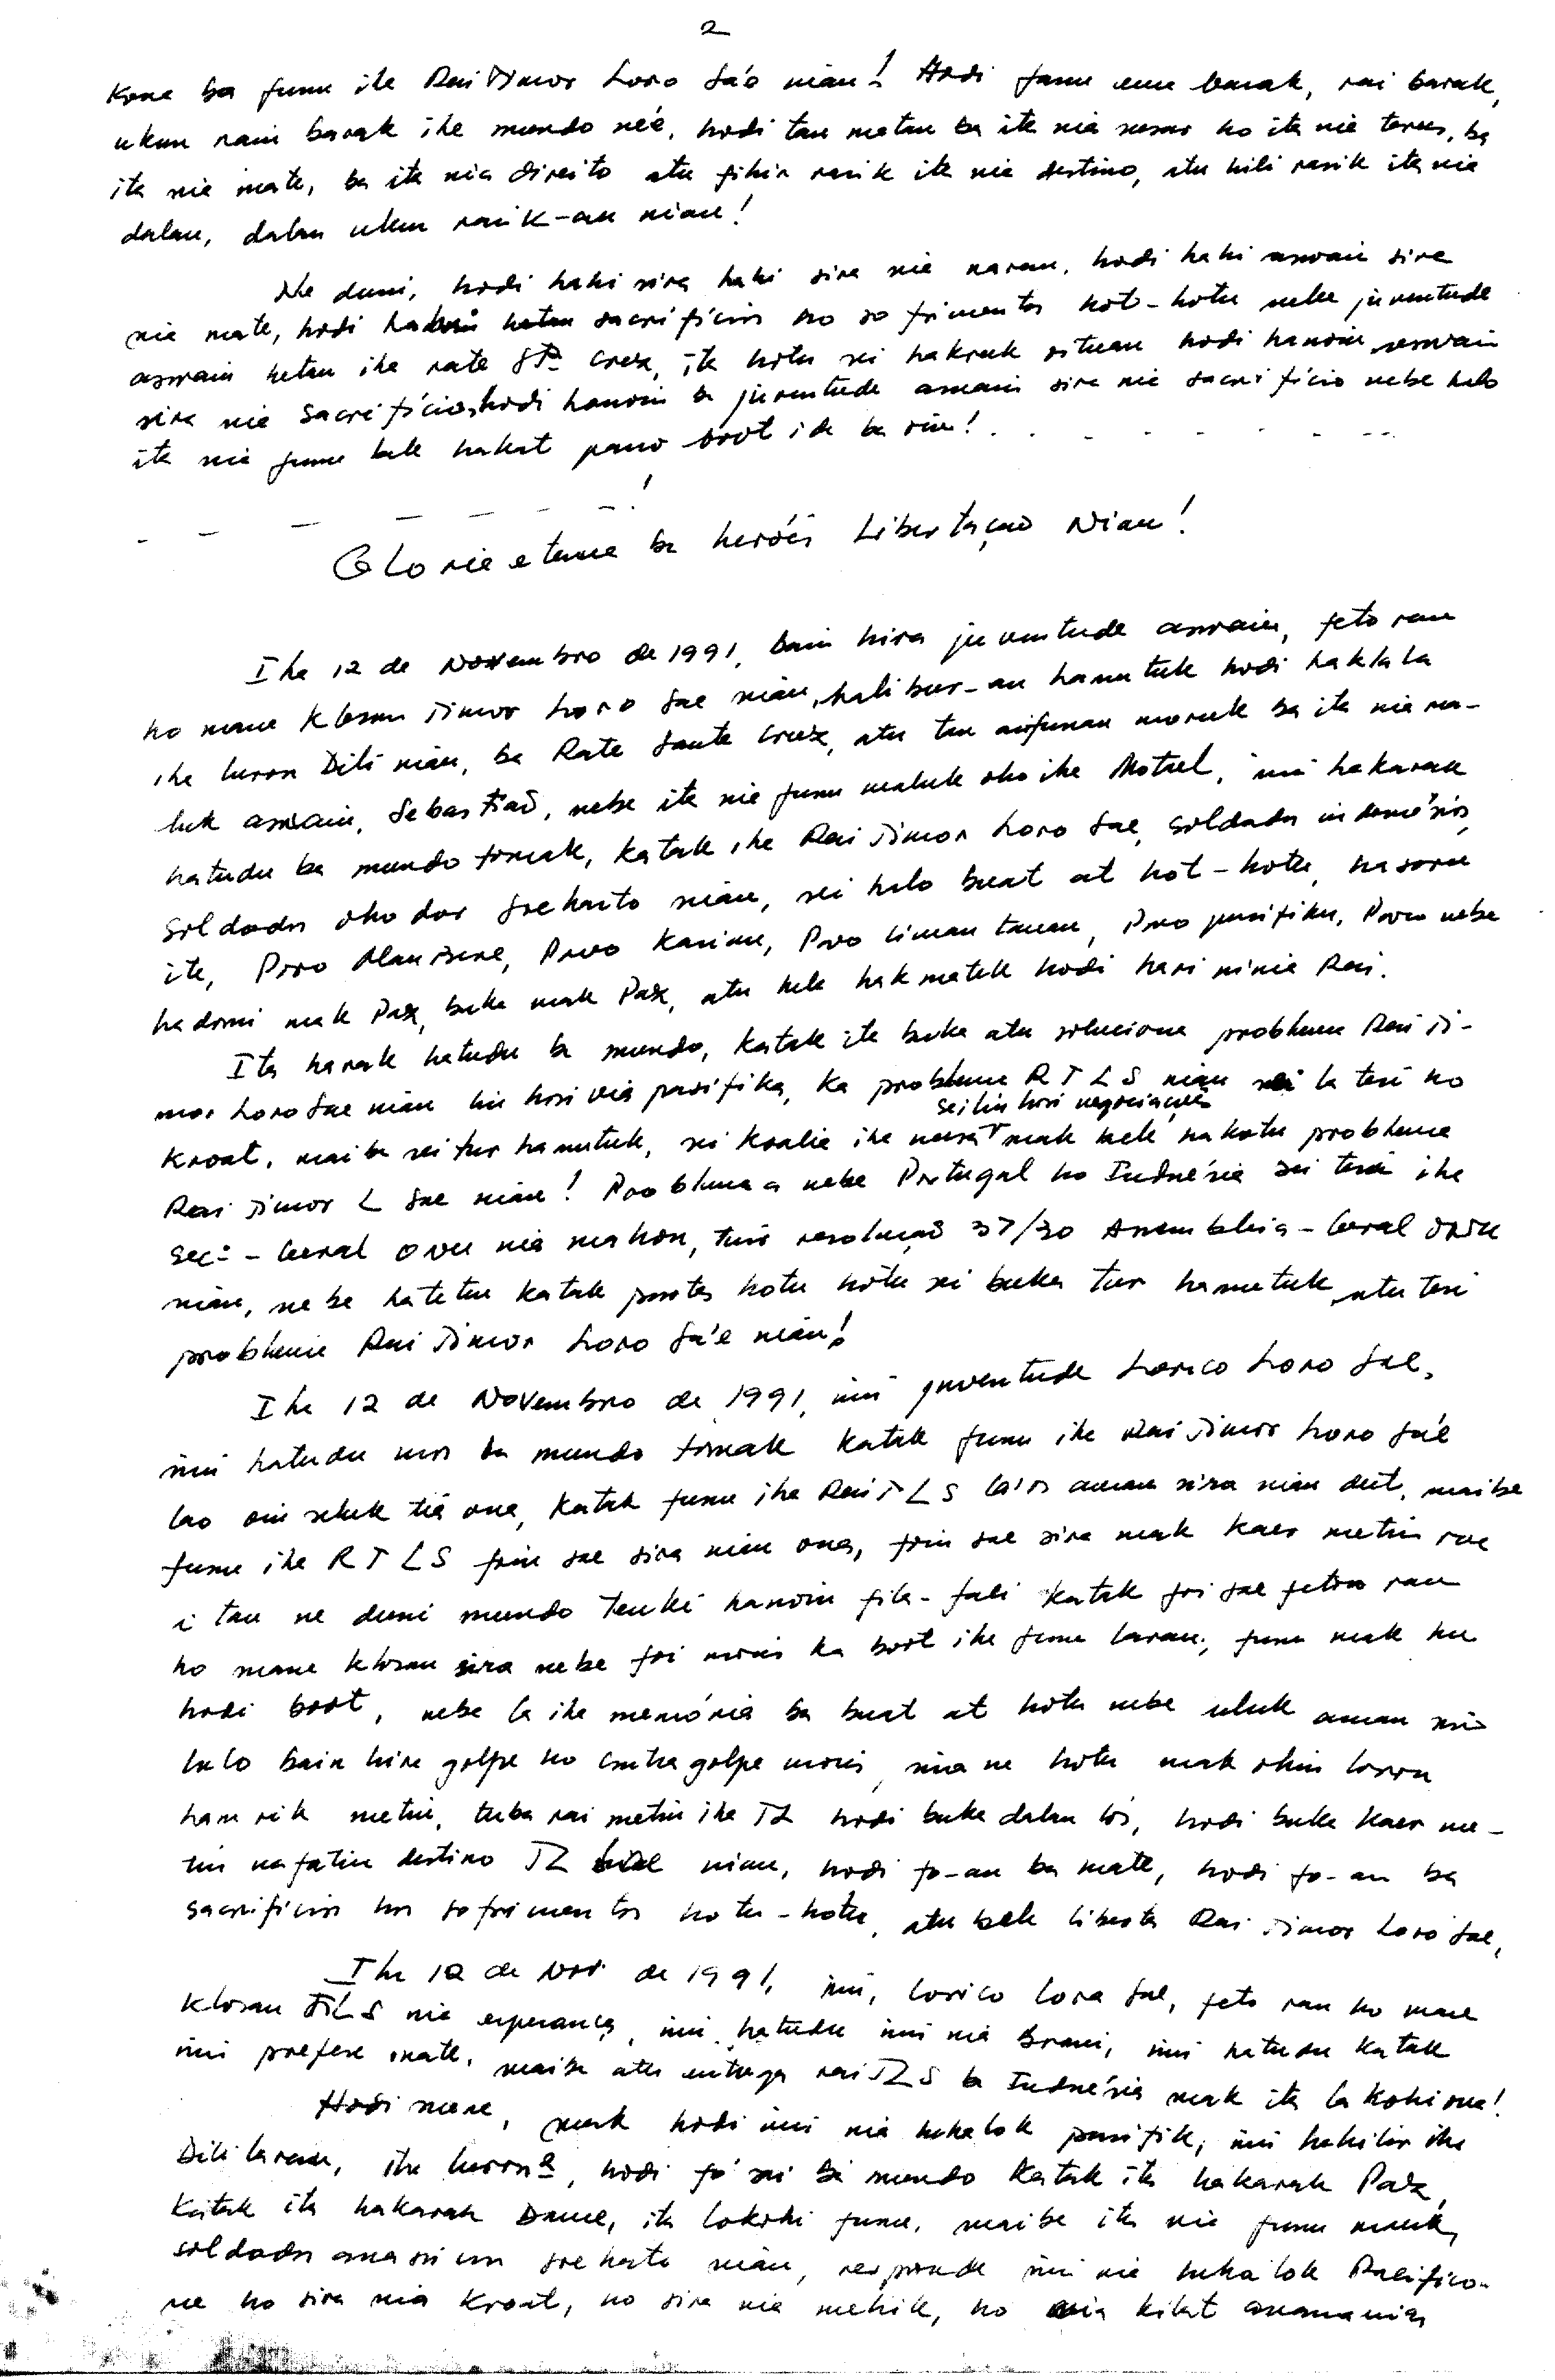 2
Kona ba funu ihe Rai Timor Loro Sa'e nian! Hodi fanu ema barak, rai barak,
ukun rain barak ihe mundo ne'e, hodi tau matan ba ita nia susar ho ita nia terus, ba
ita nia mate, ba ita nia direito atu fihir rasik ita nia destino, atu hili rasik ita nia
dalan, dalan ukun rasik-an nian!
Ne duni, hodi hahi sira hahi sira nia naran, hodi hahi aswain sira
nia mate, hodi hetan sacrifícios ho sofrimentos hot-hotu nebe juventude
aswain hetan ihe rate Sta Cruz, ita hotu sei hakruk oituan hodi hanoin aswain
sira nia sacrifícios, hodi hanoin ba juventude aswain sira nia sacrifício nebe halo
ita nia funu bele hakat passo boot ida ba oin!
Gloria eterna ba heróis Libertação Nian!
Ihe 12 de Novembro de 1991, bain hira juventude aswain, feto ran
ho mane klosan Timor Loro Sae nian, halibur-an hamutuk hodi haklala
ihe luron Dili nian, ba Rate Santa Cruz, atu tau aifunan moruk ba ita nia ma-
luk aswain, Sebastião, nebe ita nia funu maluk oho ihe Motael, imi hakarak
hatudu ba mundo tomak, katak ihe Rai Timor Loro Sae, soldadu indonésios,
soldadu oho dor Soeharto nian, sei halo buat at hot-hotu, hasoru
ite, Povo Maubere, Povo Kasian, Povo liman tanan, Povo pasifiku, Povo nebe
hadomi mak Paz, buka mak Paz, atu bele hakmatek hodi hari ninia Rai.
Ita harak hatudu ba mundo, katak ita buka atu soluciona problema Rai Ti-
mor Loro Sae nian liu hosi via pasifika, ka problema RTLS nian sei la tesi ho
kroat, maiba sei tur hamutuk, sei koalia ihe meza sei liu hosi negociações mak bele hakotu problema
Rai Timor L Sae nian! Problema nebe Portugal ho Indonésia sei tesi ihe
Sec: - Geral ONU nia mahon, tuir resolução 37/30 Assembleia - Geral ONU
nian, nebe hateten katak partes hotu hotu sei buka tur hamutuk, atu tesi
problema Rai Timor Loro Sa'e nian!
Ihe 12 de Novembro de 1991, imi juventude Lorico Loro Sae,
imi hatudu mos ba mundo tomak katak funu ihe Rai Timor Loro Sa'e
lao oin seluk tia ona, katak funu ihe Rai TLS la'os aman sira nian deit, maibe
funu ihe RTLS foin sae sira nian ona, foin sae sira mak kaer metin rae
i tau ne duni mundo tenki hanoin fila-fali katak foi sae feto ran
ho mane klosan sira nebe foi moris ka boot ihe funu laran, funu mak hu
hodi boot, nebe la ihe memória ba buat at hotu nebe uluk aman sira
halo bain hira golpe ho contra golpe moris, sira ne hotu mak ohin loron
hamrik metin, tuba rai metin ihe TL hodi buka dalan los, hodi buka kaer me-
tin nafatin destino TL nian, hodi fo-an ba mate, hodi fo-an ba
sacrifícios hos sofrimentos hotu-hotu, atu bele liberta Rai Timor Loro Sae,
Ihe 12 de Nov. de 1991, imi, Lorico Loro Sae, feto ran ho mane
klosan TLS nia esperança, imi hatudu imi nia brani, imi hatudu katak
imi prefere mate, maibe atu entrega rai TLS ba Indonésia mak ita lakohi ona!
Hodi nune, mak hodi imi nia hahalok pasifik, imi hakilar ihe
Dili laran, ihe luron, hodi fó sai ba mundo katak ita hakarak Paz,
katak ita hakarak Dame, ita lakohi funu, maibe ita nia funu maluk,
soldadu assassinos Soeharto nian, responde imi nia hahalok Pacífico
ne ho sira nia kroat, ho sira nia mehik, ho nia kilat